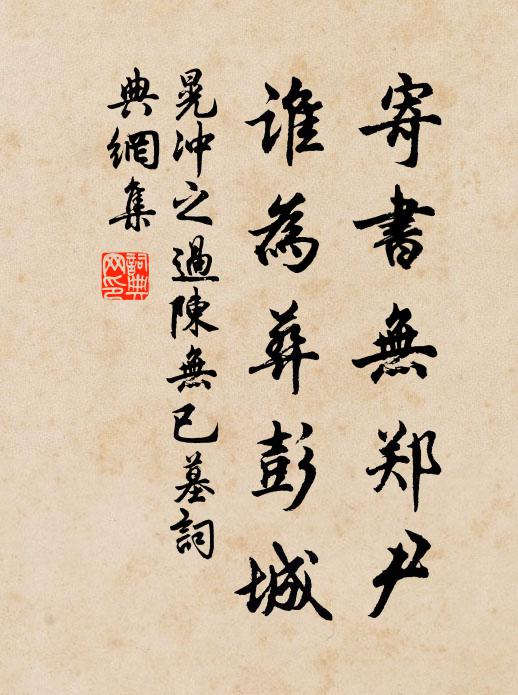 寄書無郑尹
誰為葬彭城
晁冲之過陳無已墓詞
典網集
詞典網印